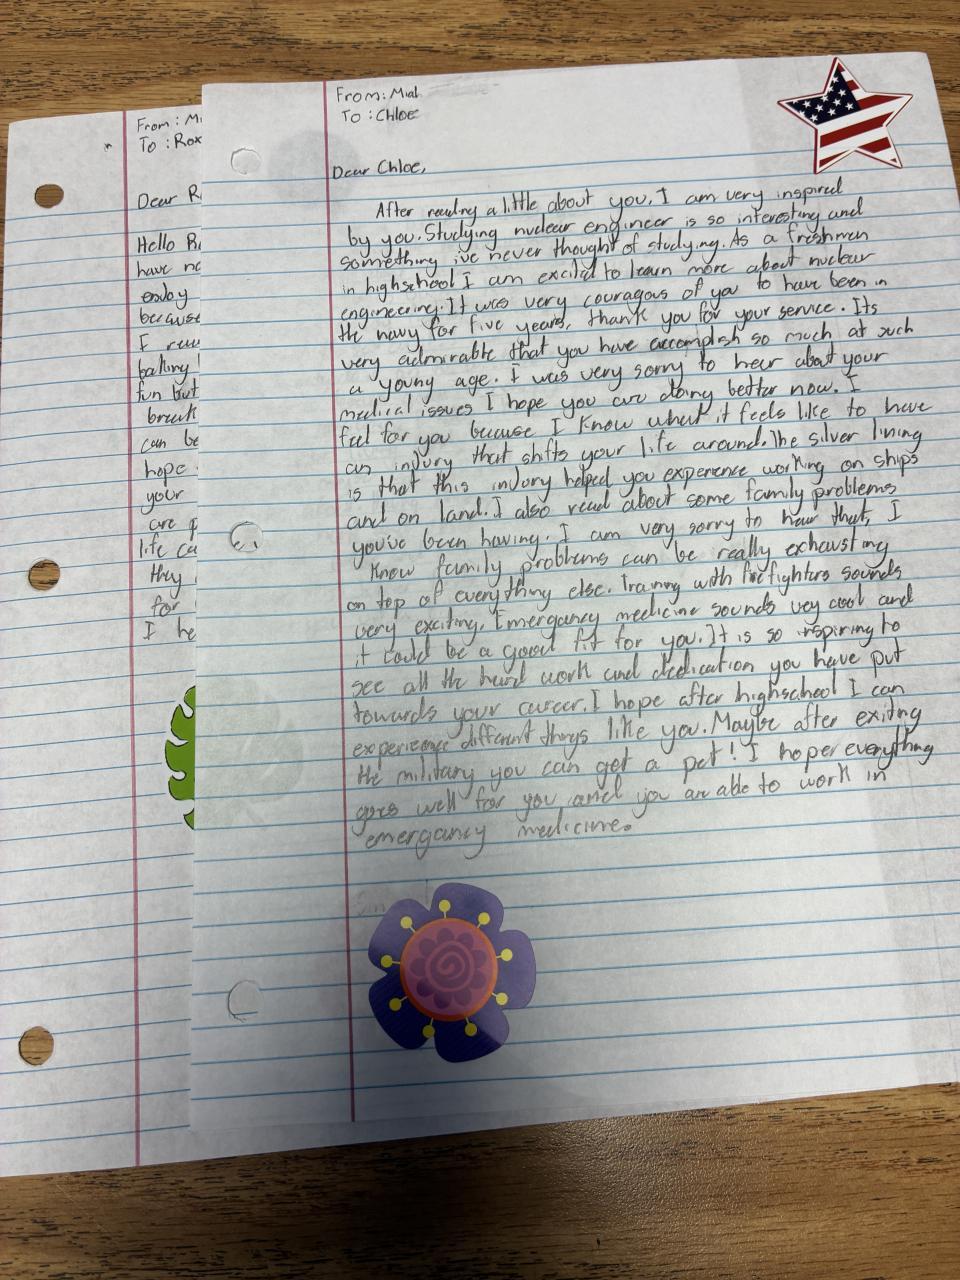 From: Mial
To : Chloe
Dear Chloe,
After reading a little about you, I am very inspired
by you. Studying nuclear engineer is so interesting and
something ive never thought of studying. As a freshmen
in highschool I am excited to learn more about nuclear
engineering. It was very couragous of you to have been in
the navy for five years, thank you for your service. Its
very admirable that you have accomplish so much at such
a young age. I was very sorry to hear about your
medical issues I hope you are doing better now. I
feel for you because I know what it feels like to have
an injury that shifts your life around. The silver lining
is that this injury helped you experience working on ships
and on land. I also read about some family problems
you've been having. I am very sorry to hear that, I
know family problems can be really exhausting
on top of everything else. Training with firefighters sounds
very exciting. Emergancy medicine sounds vey cool and
it could be a good fit for you. It is so inspiring to
see all the hard work and dedication you have put
towards your career. I hope after highschool I can
experience different things like you. Maybe after exiting
the military you can get a pet! I hoper everything
goes well for you and you are able to work in
emergancy medicine.
From: Mi
To : Rox
Dear R
Hello R
have no
enjoy
because
I
fun but
break
can be
hope
your
are p
life ca
they
for
I he